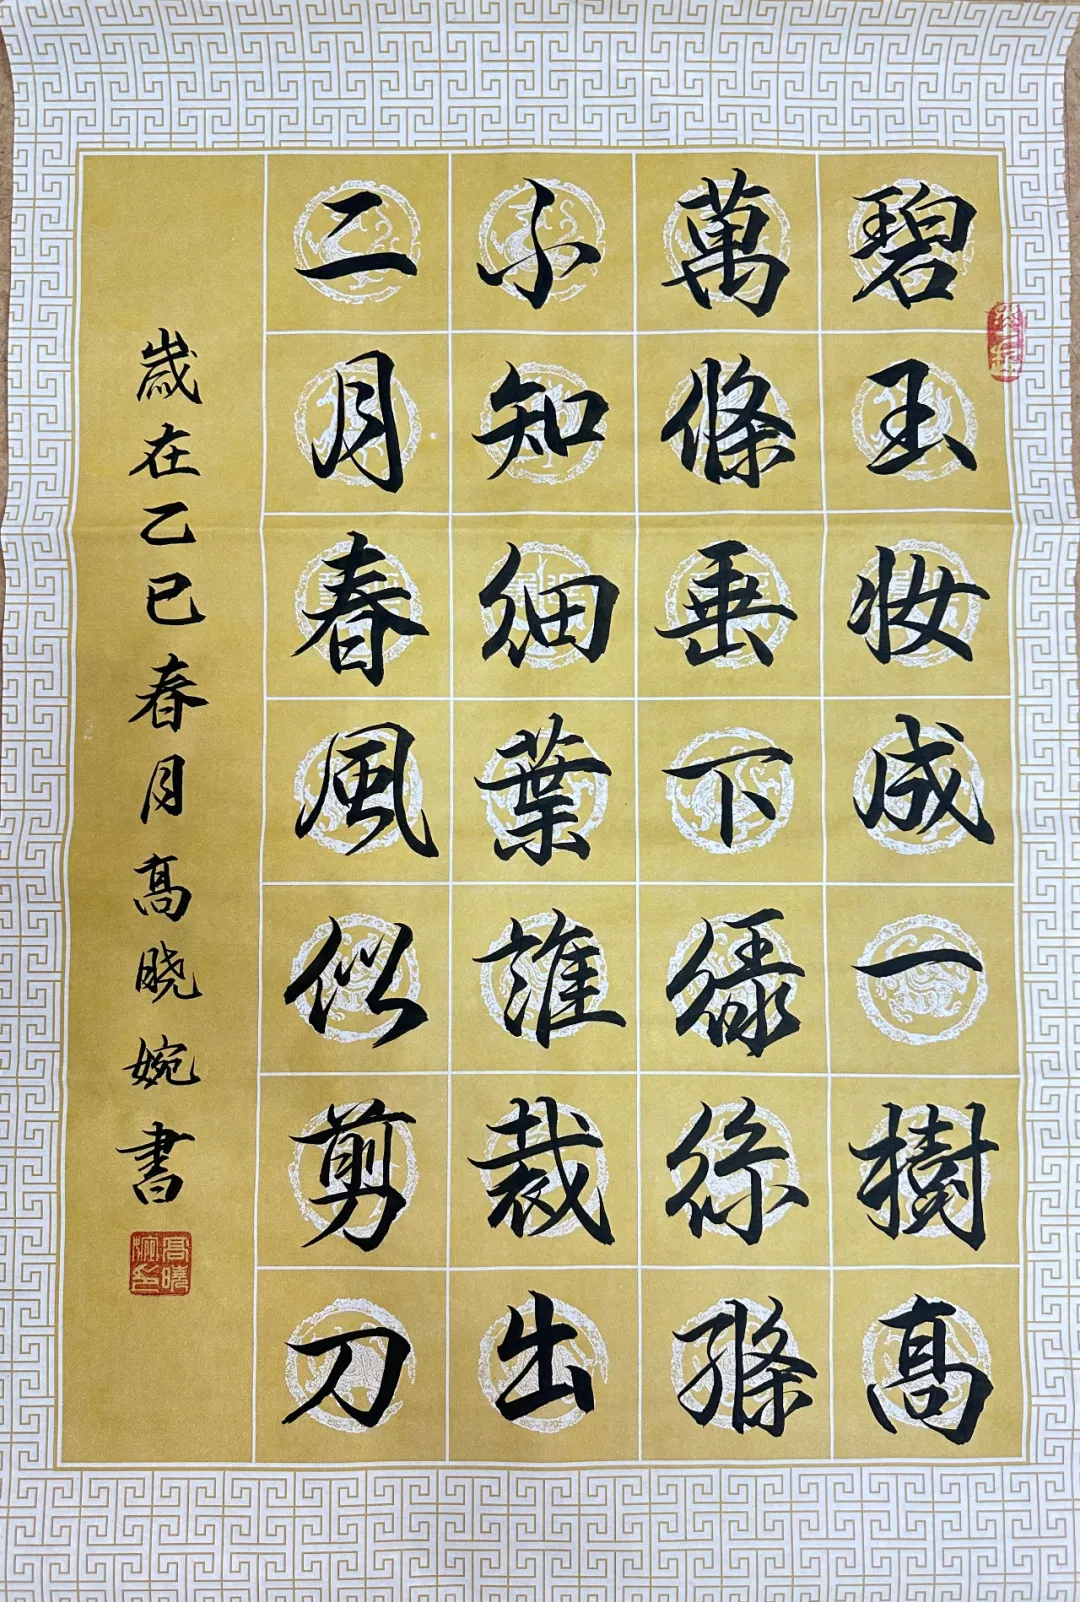 碧玉妆成一樹高
萬條垂下綠絲絛
不知細葉誰裁出
二月春風似剪刀
歲在乙巳春月高晓婉書